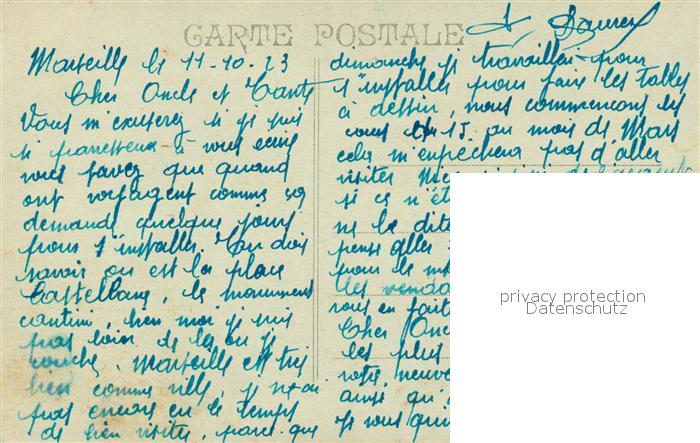 CARTE POSTALE
Marseille le 11-10-23
Cher Oncle et Tante
Vous m'excuserez si je suis
si paresseux à vous écrire
vous savez que quand
ont voyagent comme sa
demande quelque jours
pour s'installer. Tu dois
savoir ou est la place
Castellane, le monument
cantini, bien moi je suis
pas loin de la ou je
couche. Marseille est très
bien comme ville, je ne ai
pas encore eu le temps
de bien visiter, parce que
dimanche je travaillai pour
s'installer pour faire les tables
à dessin, nous commencons les
cours le 15 au mois de Mars
cela m'empechera pas d'aller
visiter
si ce n'ét
ne le dite
pense aller
pour le
les venda
vous en fait
Cher Onc
les plus
votre neuve
ainsi qu'
Je vous qui
privacy protection
Datenschutz